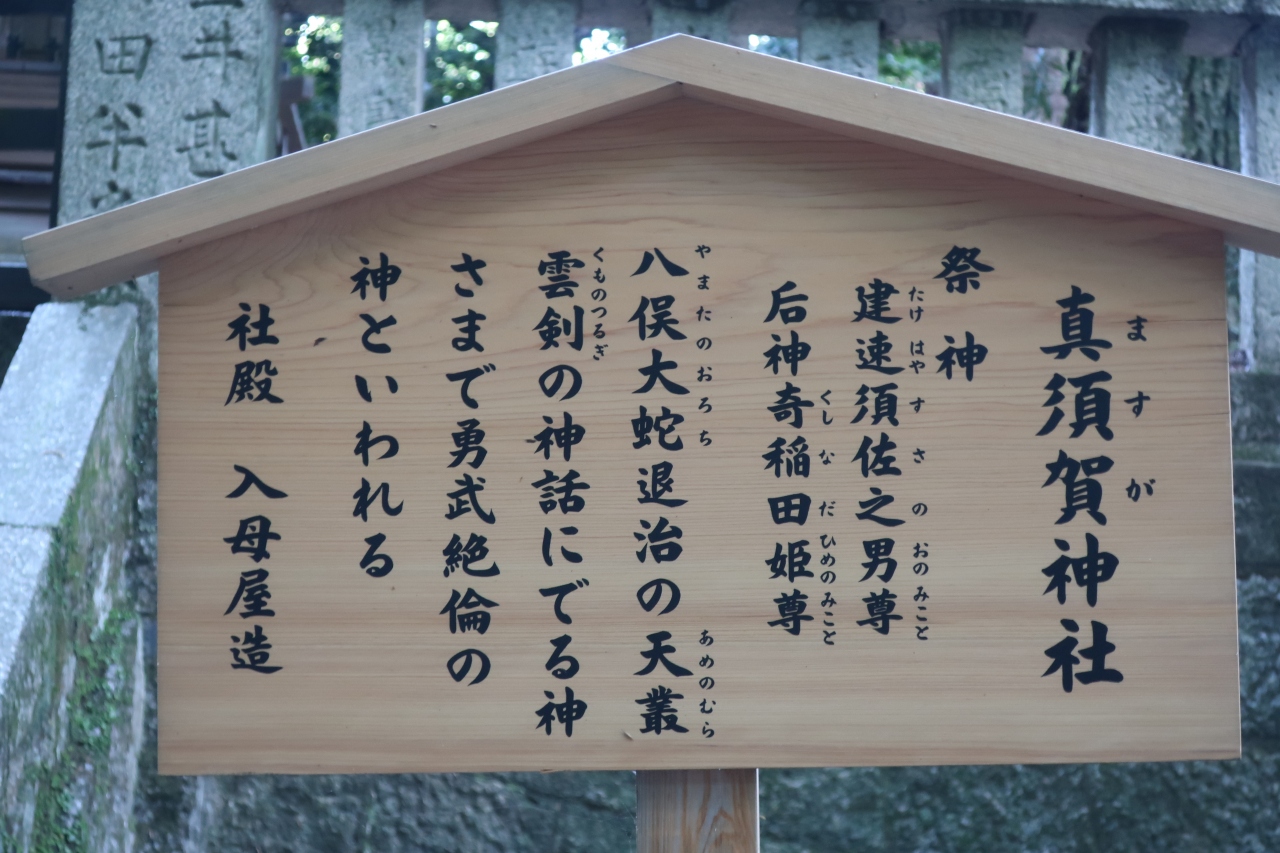 真須賀神社
ますが
祭神
建速須佐之男尊
たけはやすさのおのみこと
后神奇稲田姫尊
くしなだひめのみこと
八俣大蛇退治の天叢
やまたのおろち あめのむら
雲剣の神話にでる神
くものつるぎ
さまで勇武絶倫の
神といわれる
社殿 入母屋造